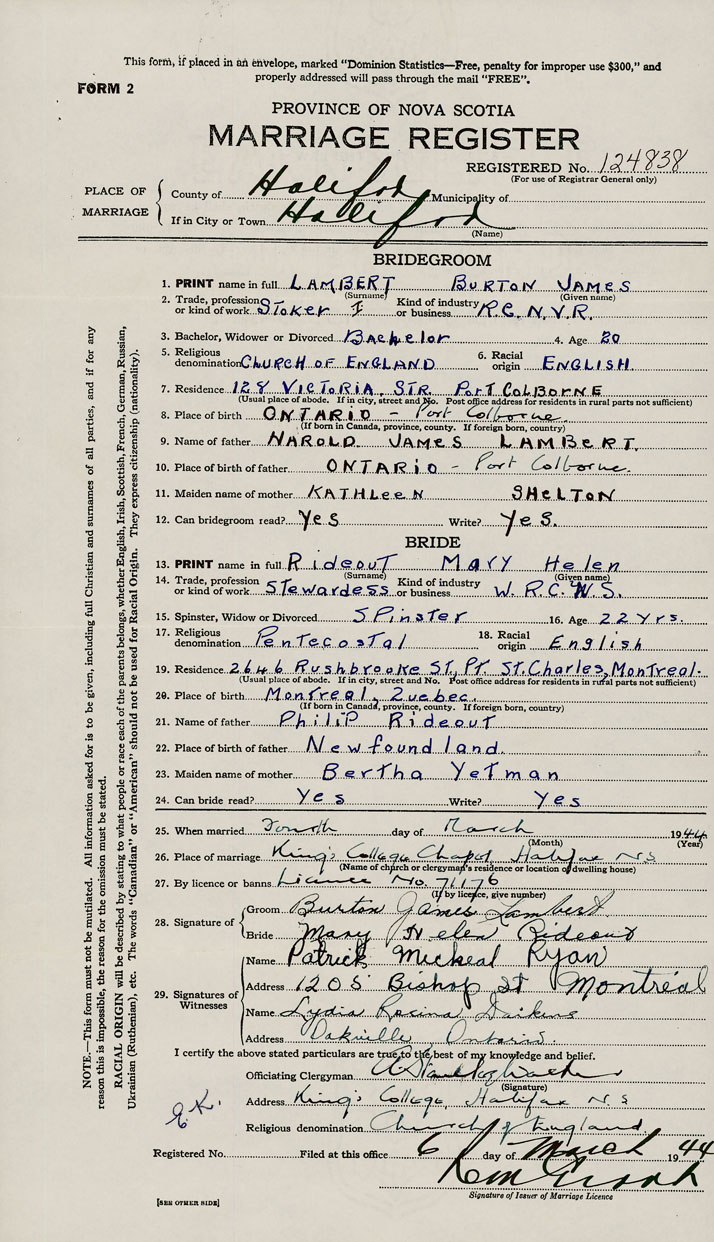 This form, if placed in an envelope, marked "Dominion Statistics—Free, penalty for improper use $300," and
properly addressed will pass through the mail "FREE".
FORM 2
PROVINCE OF NOVA SCOTIA
MARRIAGE REGISTER
REGISTERED No. 124838
(For use of Registrar General only)
PLACE OF MARRIAGE
County of Halifax Municipality of
If in City or Town Halifax
(Name)
BRIDEGROOM
1. PRINT name in full LAMBERT BURTON JAMES
(Surname) (Given name)
2. Trade, profession or kind of work Stoker I Kind of industry or business R.C.N.V.R.
3. Bachelor, Widower or Divorced Bachelor 4. Age 20
5. Religious denomination CHURCH OF ENGLAND 6. Racial origin ENGLISH.
7. Residence 128 VICTORIA STR. PORT COLBORNE
(Usual place of abode. If in city, street and No. Post office address for residents in rural parts not sufficient)
8. Place of birth ONTARIO - Port Colborne
(If born in Canada, province, county. If foreign born, country)
9. Name of father HAROLD JAMES LAMBERT.
10. Place of birth of father ONTARIO - Port Colborne.
11. Maiden name of mother KATHLEEN SHELTON
12. Can bridegroom read? Yes Write? Yes.
BRIDE
13. PRINT name in full Rideout Mary Helen
(Surname) (Given name)
14. Trade, profession or kind of work Stewardess Kind of industry or business W.R.C.N.S.
15. Spinster, Widow or Divorced SPinster 16. Age 22 Yrs.
17. Religious denomination Pentecostal 18. Racial origin English
19. Residence 2646 Rushbrooke St, Pt. St. Charles, Montreal.
(Usual place of abode. If in city, street and No. Post office address for residents in rural parts not sufficient)
20. Place of birth Montreal, Quebec.
(If born in Canada, province, county. If foreign born, country)
21. Name of father PhiliP Rideout
22. Place of birth of father Newfoundland.
23. Maiden name of mother Bertha Yetman
24. Can bride read? Yes Write? Yes
25. When married Fourth day of March 1944
(Month) (Year)
26. Place of marriage King's College Chapel, Halifax N.S.
(Name of church or clergyman's residence or location of dwelling house)
27. By licence or banns Licence No. 71176
(If by licence, give number)
28. Signature of
Groom Burton James Lambert.
Bride Mary Helen Rideout
29. Signatures of Witnesses
Name Patrick Micheal Ryan
Address 1205 Bishop St Montréal
Name Lydia Rosina
Address Oakville, Ontario.
I certify the above stated particulars are true to the best of my knowledge and belief.
Officiating Clergyman
(Signature)
Address King's College, Halifax N.S
Religious denomination Church of England
Registered No. Filed at this office 6 day of March 1944
Signature of Issuer of Marriage Licence
[SEE OTHER SIDE]
NOTE.—This form must not be mutilated. All information asked for is to be given, including full Christian and surnames of all parties, and if for any
reason this is impossible, the reason for the omission must be stated.
RACIAL ORIGIN will be described by stating to what people or race each of the parents belongs, whether English, Irish, Scottish, French, German, Russian,
Ukrainian (Ruthenian), etc. The words "Canadian" or "American" should not be used for Racial Origin. They express citizenship (nationality).